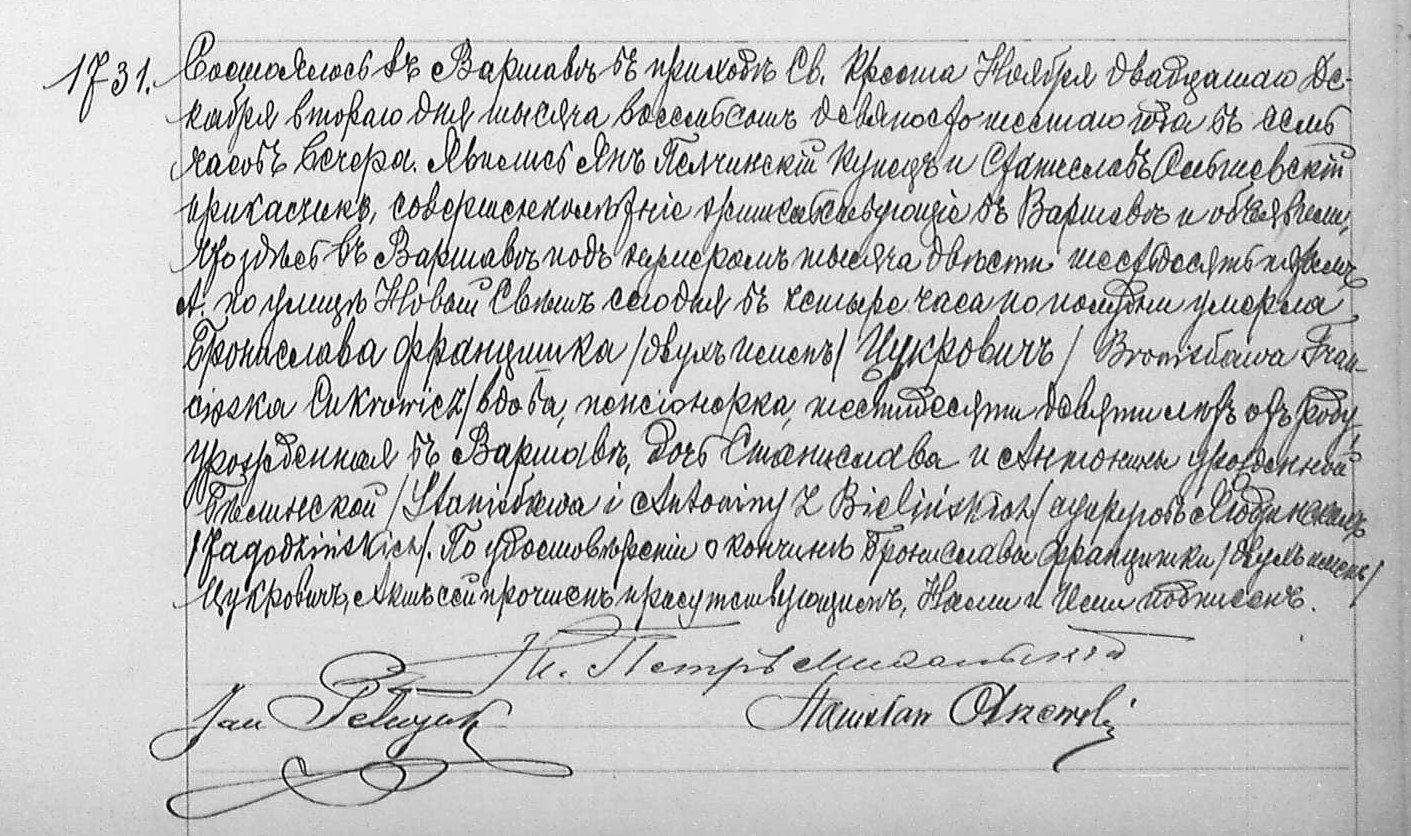 1731. Состоялось въ Варшавѣ въ приходѣ Св. Креста Ноября двадцатаго Де-
кабря втораго дня тысяча восемьсотъ девяносто шестаго года въ семь
часовъ вечера. Явились Янъ Пелчинскій купецъ и Станиславъ Ольшевскій
прикащикъ, совершеннолѣтніе жительствующіе въ Варшавѣ и объявили,
что здѣсь въ Варшавѣ подъ номеромъ тысяча двѣсти шестьдесятъ
А. по улицѣ Новый Свѣтъ сегодня въ четыре часа по полудни умерла
Бронислава Францишка /двухъ именъ/ Цукровичъ / Bronisława Fran-
ciszka Cukrowicz/ вдова, пенсіонерка, шестидесяти девяти лѣтъ отъ роду,
урожденная въ Варшавѣ, дочь Станислава и Антонины урожденной
Бѣлинской /Stanisława i Antoniny z Bielińskich/ супруговъ Ягодзинскихъ
/Jagodzińskich/. По удостовѣреніи о кончинѣ Брониславы Францишки /двухъ именъ/
Цукровичъ, Актъ сей прочтенъ присутствующимъ, Нами и Ими подписанъ.
Кс. Петръ Михальскій
Jan
Stanisław Olszewski